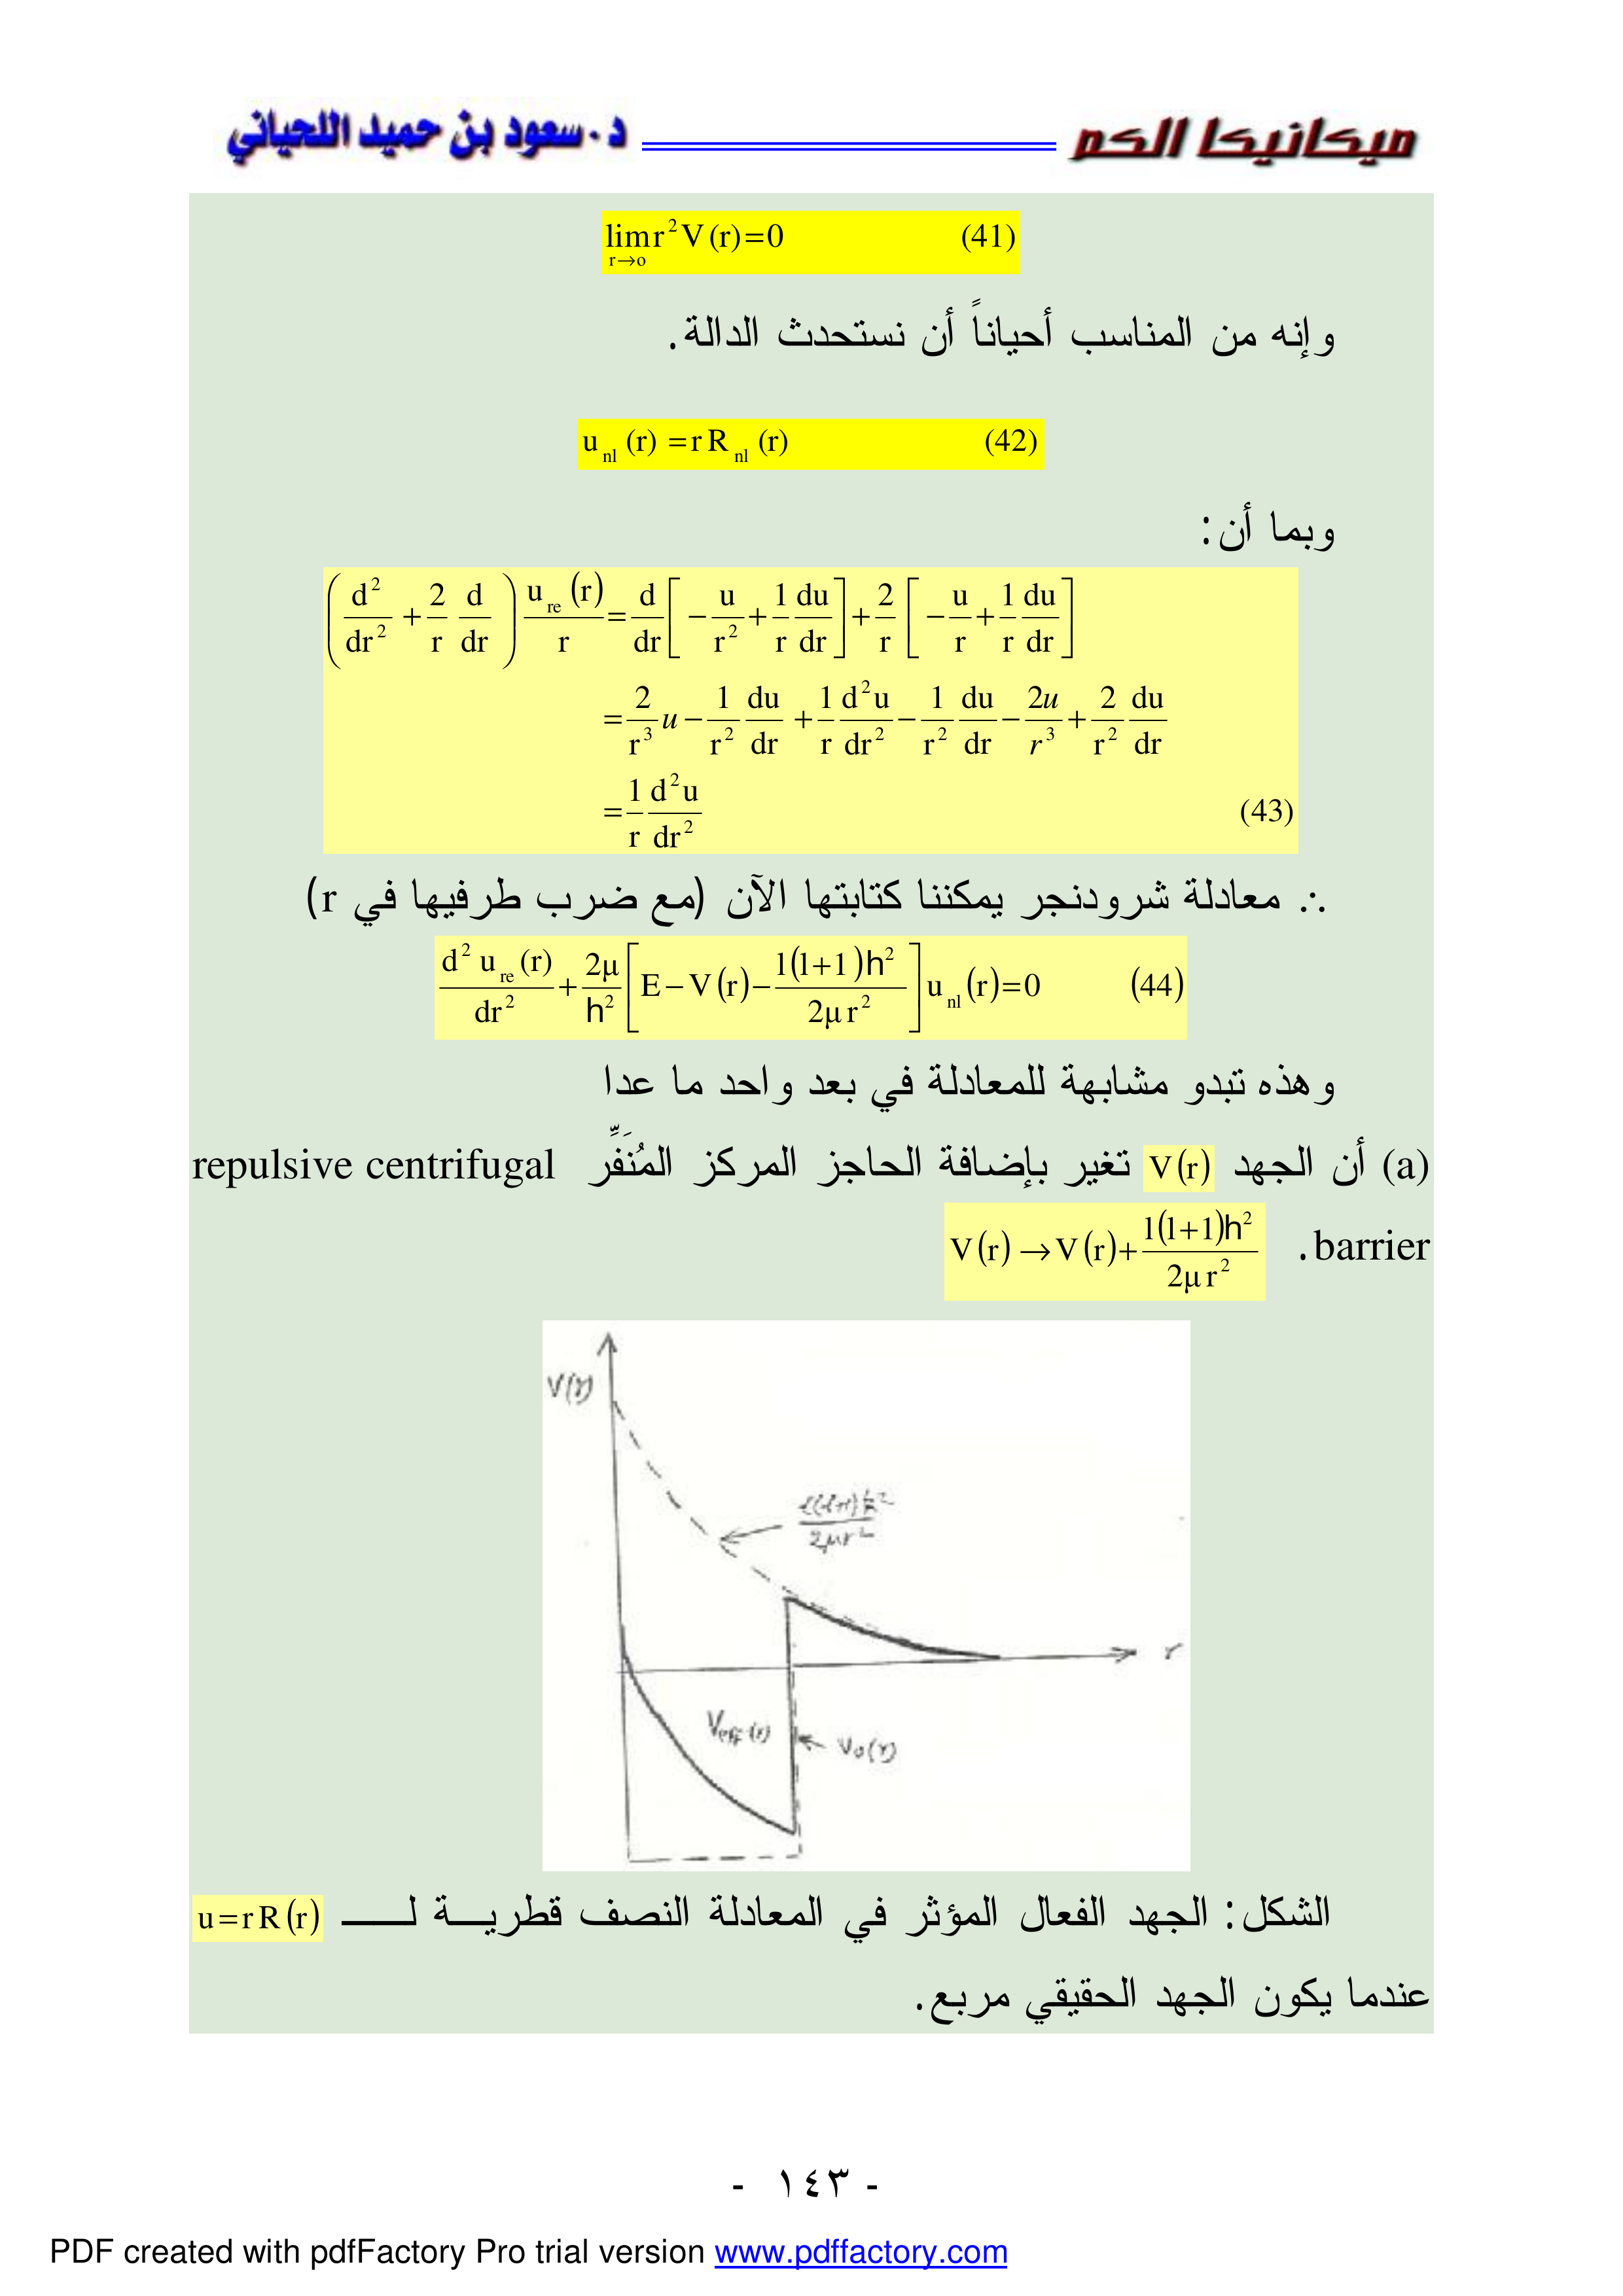 ميكانيكا الكم د. سعود بن حميد اللحياني
lim r→o r² V(r) = 0 (41)
وإنه من المناسب أحياناً أن نستحدث الدالة.
u nl (r) = r R nl (r) (42)
وبما أن:
(d²/dr² + 2/r d/dr) u re (r)/r = d/dr [− u/r² + 1/r du/dr] + 2/r [− u/r + 1/r du/dr]
= 2/r³ u − 1/r² du/dr + 1/r d²u/dr² − 1/r² du/dr − 2u/r³ + 2/r² du/dr
= 1/r d²u/dr² (43)
∴ معادلة شرودنجر يمكننا كتابتها الآن (مع ضرب طرفيها في r)
d² u re (r)/dr² + 2μ/h² [E − V(r) − l(l+1)h²/2μ r²] u nl (r) = 0 (44)
وهذه تبدو مشابهة للمعادلة في بعد واحد ما عدا
(a) أن الجهد V(r) تغير بإضافة الحاجز المركز المُنَفِّر repulsive centrifugal
barrier. V(r) → V(r) + l(l+1)h²/2μ r²
V(r)
ℓ(ℓ+1)ħ²/2μr²
r
Veff(r)
V₀(r)
الشكل: الجهد الفعال المؤثر في المعادلة النصف قطرية لـ u = r R(r)
عندما يكون الجهد الحقيقي مربع.
- ١٤٣ -
PDF created with pdfFactory Pro trial version www.pdffactory.com